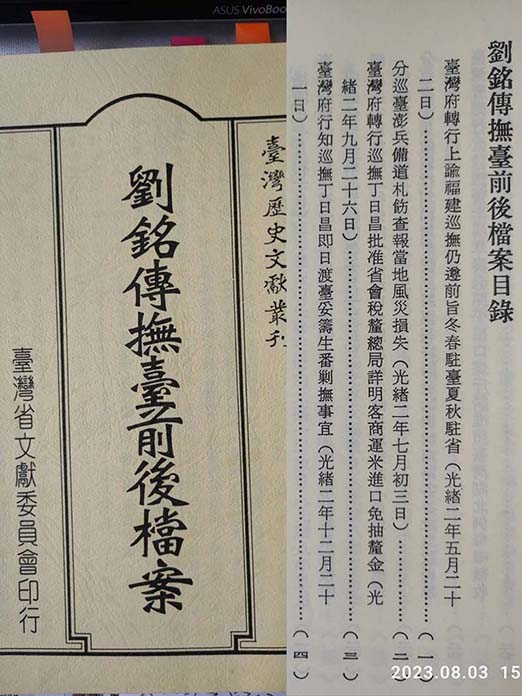 ASUS VivoBoo
臺灣歷史文獻叢刊
劉銘傳撫臺前後檔案
臺灣省文獻委員會印行
劉銘傳撫臺前後檔案目錄
臺灣府轉行上諭福建巡撫仍遵前旨冬春駐臺夏秋駐省(光緒二年五月二十
二日)……(一)
分巡臺澎兵備道札飭查報當地風災損失(光緒二年七月初三日)……(二)
臺灣府轉行巡撫丁日昌批准省會稅釐總局詳明客商運米進口免抽釐金(光
緒二年九月二十六日)……(三)
臺灣府行知巡撫丁日昌即日渡臺妥籌生番剿撫事宜(光緒二年十二月二十
一日)……(四)
2023.08.03 15